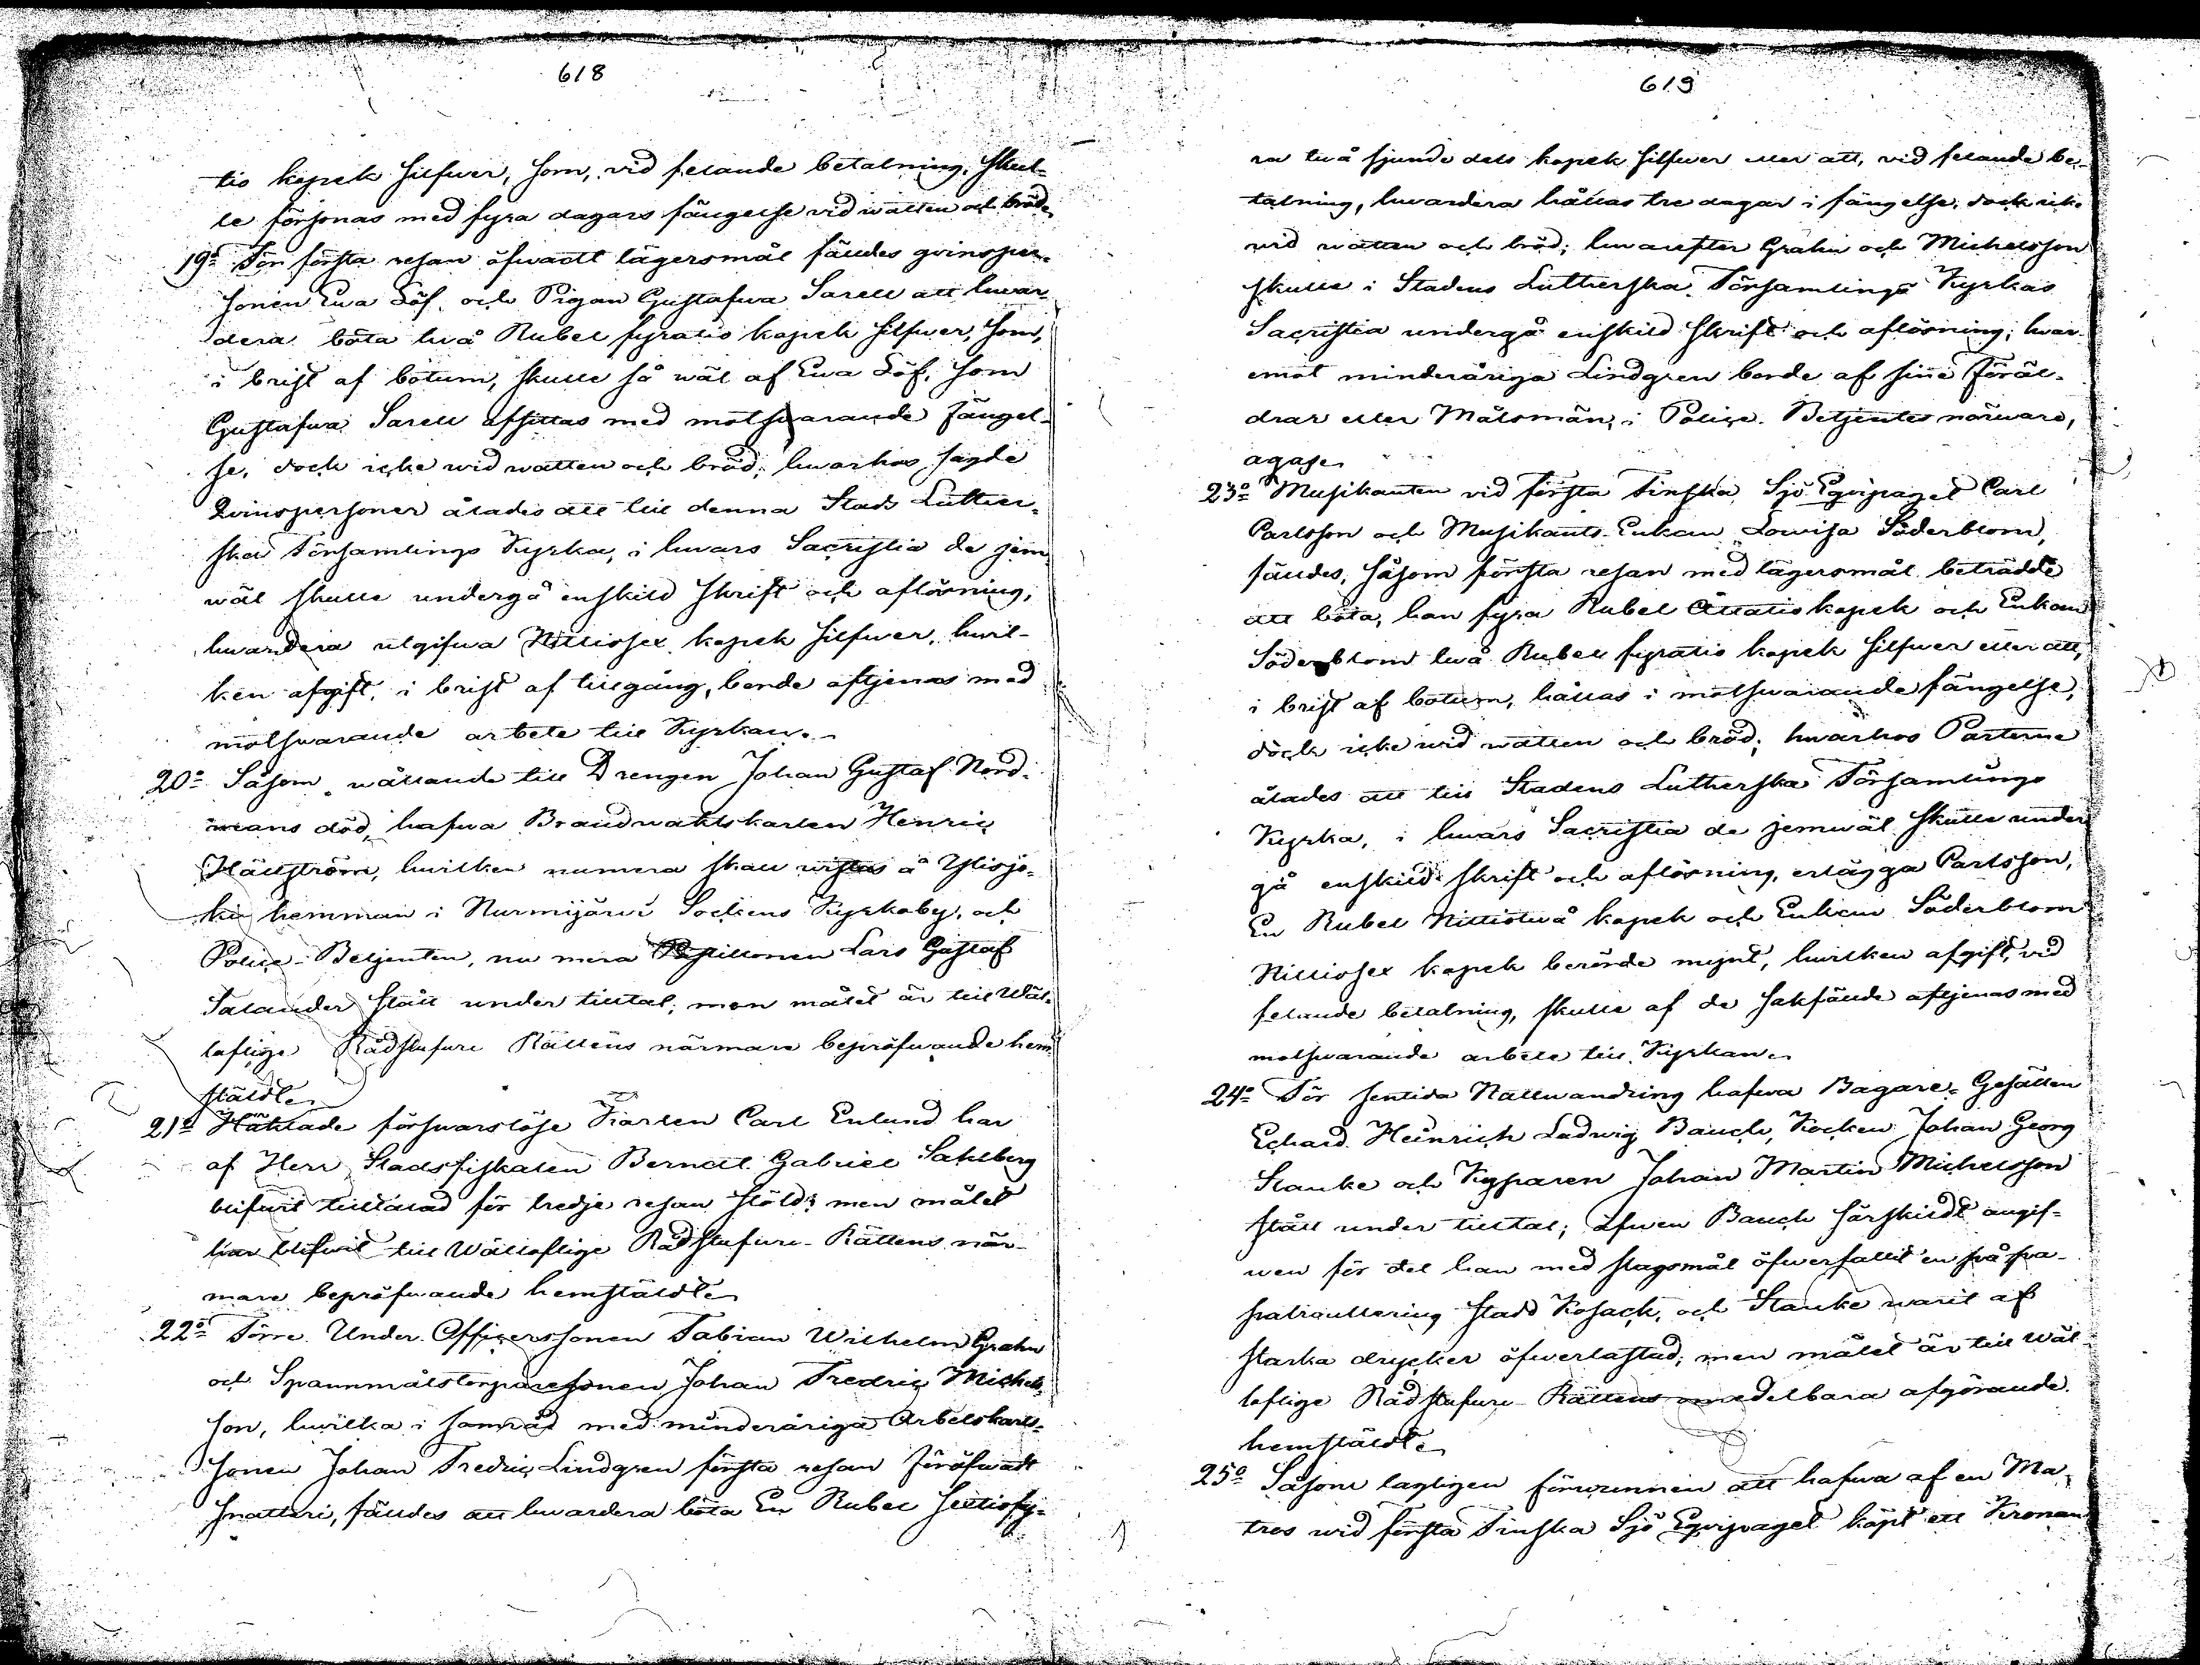 618
tio kopek silfwer, som, vid felande betalning, skul-
le försonas med fyra dagars fängelse vid watten och bröd.
19:o För första resan öfwadt lägersmål fäldes qvinsper-
sonen Ewa Löf och Pigan Gustafwa Sarell att hwar-
dera böta twå Rubel fyratio kopek silfwer, som,
i brist af bötum, skulle så wäl af Ewa Löf, som
Gustafwa Sarell afsittas med motswarande fängel-
se, dock icke wid watten och bröd; hwarhos sagde
Qvinspersoner ålades att till denna Stads Luther-
ska Församlings Kyrka, i hwars Sacristia de jem-
wäl skulle undergå enskild skrift och aflösning,
hwardera utgifwa Nittiosex kopek silfwer, hwil-
ken afgift, i brist af tillgång, borde aftjenas med
motswarande arbete till Kyrkan.
20:o Såsom wållande till Drengen Johan Gustaf Nord-
mans död, hafwa Brandwaktskarlen Henric
Hällström, hwilken numera skall wistas å Ylisjo-
ki hemman i Nurmijärwi Sockens Kyrkoby, och
Police-Betjenten, nu mera Postillonen Lars Gustaf
Salander stått under tilltal; men målet är till Wäl-
loflige Rådstufwu Rättens närmare bepröfwande hem-
stäldt.
21:o Häktade förswarslöse Karlen Carl Enlund har
af Herr Stadsfiskalen Berndt Gabriel Sahlberg
blifwit tilltalad för tredje resan stöld; men målet
har blifwit till Wälloflige Rådstufwu-Rättens när-
mare bepröfwande hemstäldt.
22:o Förre Under-Officerssonen Fabian Wilhelm Grahn
och Spannmålstorparesonen Johan Fredric Michels-
son, hwilka i samråd med minderåriga Arbetskarls-
sonen Johan Fredric Lindgren första resan föröfwadt
snatteri, fäldes att hwardera böta En Rubel sextiofy-
619
ra twå sjunde dels kopek silfwer eller att, vid felande be-
talning, hwardera hållas tre dagar i fängelse, dock icke
wid watten och bröd; hwarefter Grahn och Michelsson
skulle i Stadens Lutherska Församlings Kyrkas
Sacristia undergå enskild skrift och aflösning; hwar-
emot minderåriga Lindgren borde af sine föräl-
drar eller Målsmän, i Police-Betjentes närwaro,
agas.
23:o Musikanten vid första Finska Sjö Eqvipaget Carl
Carlsson och Musikants-Enkan Lowisa Söderblom,
fäldes, såsom första resan med lägersmål beträdde
att böta, han fyra Rubel Åttatio kopek och Enkan
Söderblom twå Rubel fyratio kopek silfwer eller att,
i brist af bötum, hållas i motswarande fängelse,
dock icke wid watten och bröd; hwarhos Parterne
ålades att till Stadens Lutherska Församlings
Kyrka, i hwars Sacristia de jemwäl skulle under
gå enskild skrift och aflösning, erlägga Carlsson,
En Rubel Nittiotwå kopek och Enkan Söderblom
Nittiosex kopek berörde mynt, hwilken afgift, vid
felande betalning, skulle af de sakfälde aftjenas med
motswarande arbete till Kyrkan.
24:o För sentida Nattwandring hafwa Bagare-Gesällen
Echard Heinrich Ludwig Bauch, Kocken Johan Georg
Stanke och Kyparen Johan Martin Michelsson
stått under tilltal; äfwen Bauch särskildt angif-
wen för det han med slagsmål öfwerfallit en på pa-
patroullering stadd Kosack, och Stanke warit af
starka drycker öfwerlastad; men målet är till Wäl-
loflige Rådstufwu-Rättens omedelbara afgörande
hemstäldt.
25:o Såsom lagligen förwunnen att hafwa af en Ma-
tros wid första Finska Sjö Eqvipaget köpt ett Kronan